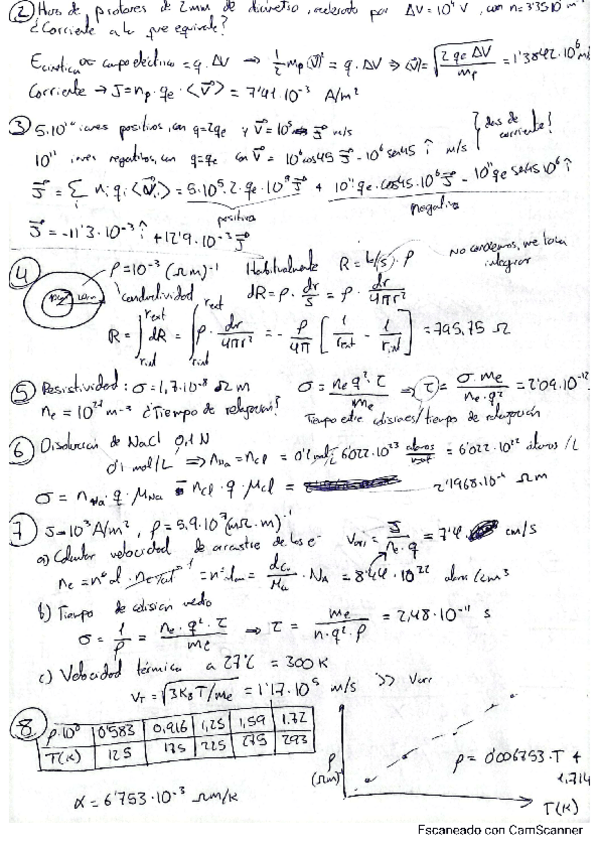 ② Haz de protones de 2mm de diámetro, acelerado por ΔV = 10⁴ V, con n=3'35·10 m
¿Corriente a la que equivale?
= q·ΔV → ½ mp⟨v⟩² = q·ΔV ⇒ ⟨v⟩ = √(2 qe ΔV / mp) = 1'3842·10⁶ m/s
Corriente → J = np·qe·⟨v⟩ = 7'41·10⁻³ A/m²
③ iones positivos, con q=2qe y v = 10⁵ j m/s
10¹¹ iones negativos, con q=qe con v = 10⁶cos45 j - 10⁶ sen45 i m/s
dens de corriente?
J = Σ ni qi ⟨vi⟩ = 5·10⁵·2·qe·10⁵ j + 10¹¹qe·cos45·10⁶ j - 10¹¹qe sen45 10⁶ i
positiva
negativa
J = -11'3·10⁻³ i + 12'9·10⁻³ j
④ ρ = 10⁻³ (Ωm)⁻¹ Habitualmente R = (L/S)·ρ
integrar
conductividad dR = ρ·dr/S = ρ·dr/4πr²
R = ∫ dR = ∫ ρ·dr/4πr² = -ρ/4π [1/rext - 1/rint] = 795,75 Ω
⑤ Resistividad: σ=1,7·10⁻⁸ Ωm σ = ne q² τ / me ⇒ τ = σ·me / ne·q² = 2'09·10⁻¹²
ne = m⁻³ ¿Tiempo de relajación? Tiempo entre colisiones/tiempo de relajación
⑥ Disolución de NaCl 0,1 N
0'1 mol/L ⇒ nNa = nCl = 0'1 mol/L 6'022·10²³ átomos/mol = 6'022·10²² átomos/L
σ = nNa·q·μNa nCl·q·μCl = 2'1968·10⁻⁶ Ωm
⑦ J=10³ A/m², ρ = 5,9·10⁷ (Ω·m)⁻¹
a) Calcular velocidad de arrastre de los e⁻ Varr = J / ne·q = 7'4· cm/s
= dCu/Ma · NA = 8'44·10²² átomos/cm³
b) Tiempo de colisión medio
σ = 1/ρ = ne·q²·τ / me ⇒ τ = me / n·q²·ρ = 2,48·10⁻¹¹ s
c) Velocidad térmica a 27°C = 300 K
VT = √(3KBT/me) = 1'17·10⁵ m/s >> Varr
⑧ ρ·10⁸ 0'583 0,916 1,25 1,59 1.72
T(K) 125 175 225 275 293
ρ (Ωm)
ρ = 0'006753·T +
T(K)
α = 6'753·10⁻³ Ωm/K
Escaneado con CamScanner